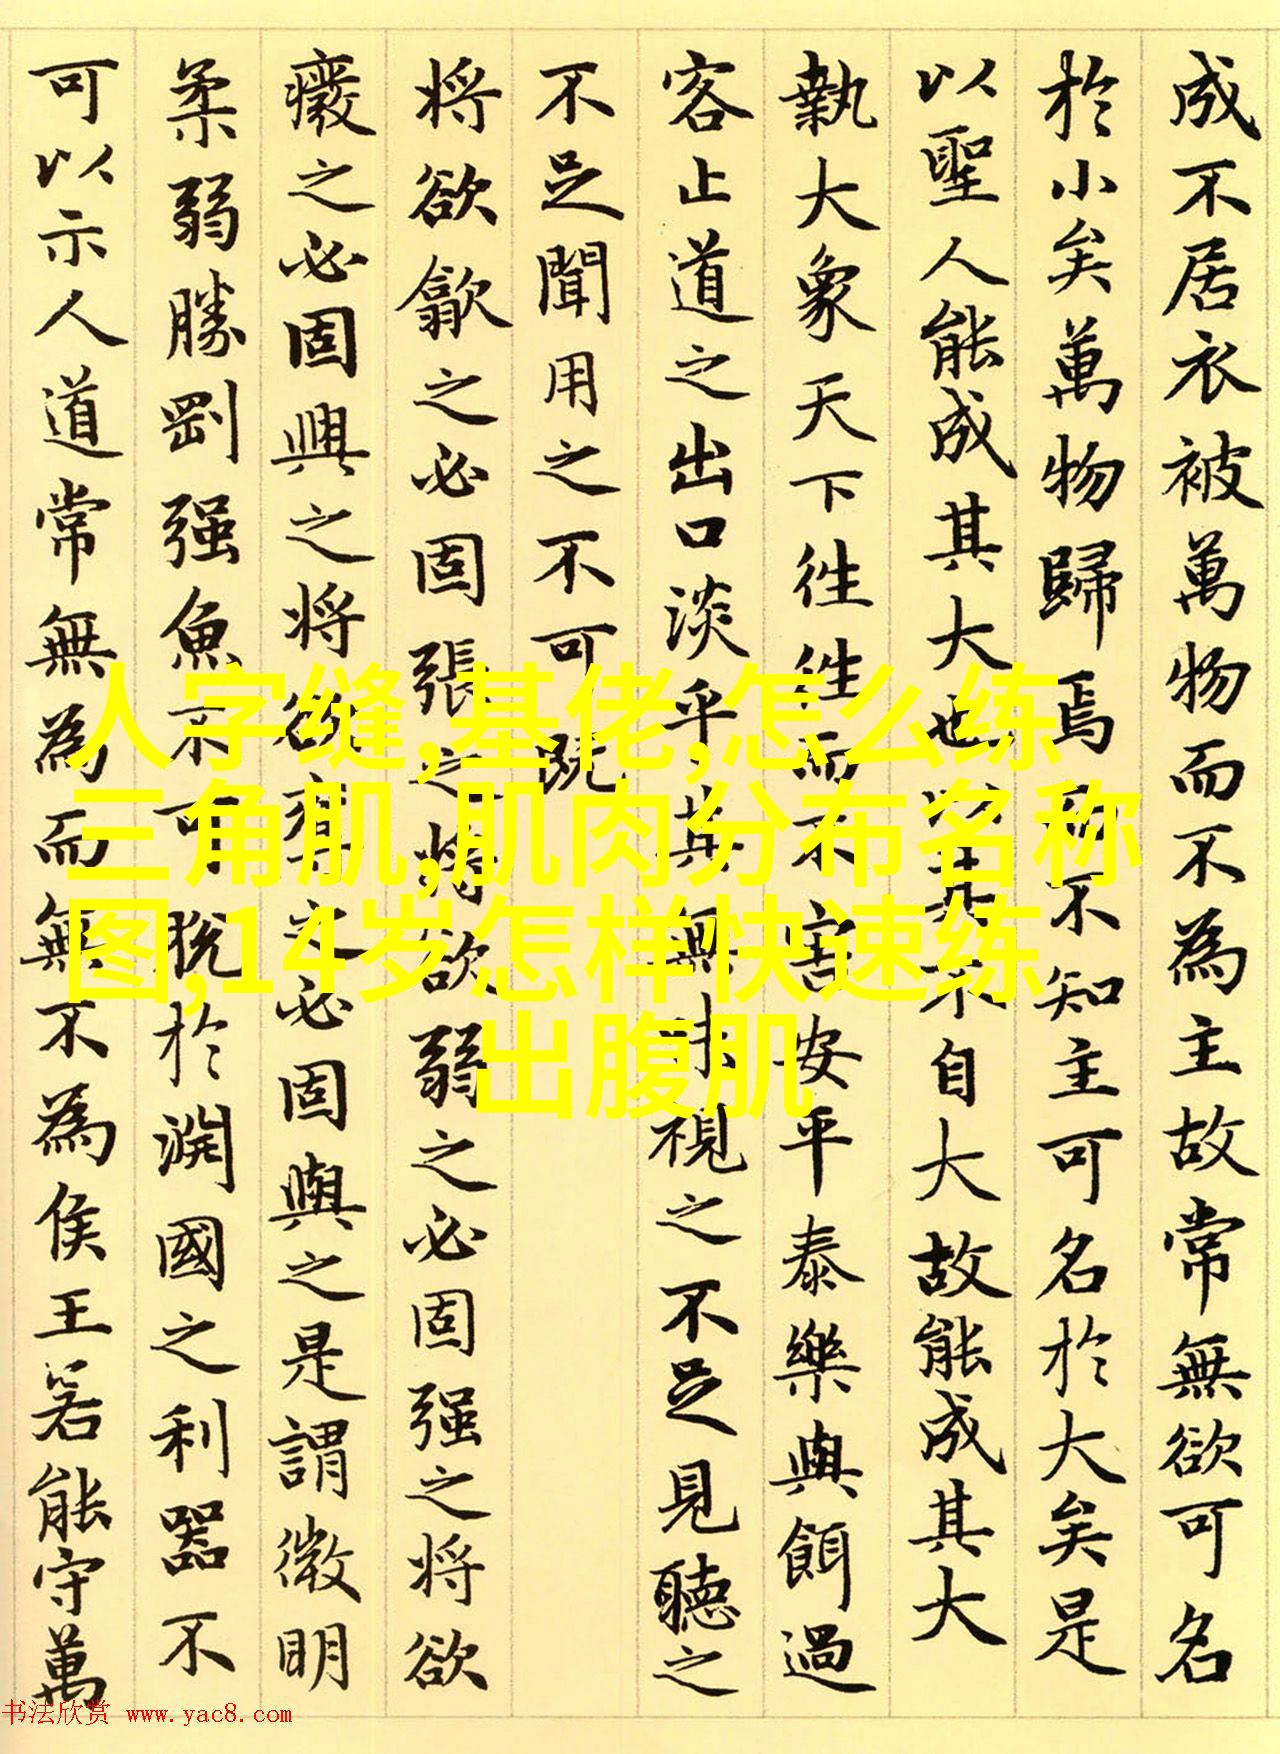 成不居衣被萬物而不為主故常無欲可名
於小矣萬物歸焉而不知主可名於大矣是
以聖人能成其大也以其不自大故能成其大
執大象天下往往而不害安平泰樂與餌過
客止道之出口淡乎其無味視之不足見聽之
不足聞用之不可既
将欲歙之必固張之将欲弱之必固强之将欲
癈之必固興之将欲奪之必固與之是謂微明
柔弱勝剛强魚不可脱於淵國之利器不
可以示人道常無為而無不為侯王若能守萬
人字缝,基佬,怎么练
三角肌,肌肉分布名称
图,14岁怎样快速练
出腹肌
书法欣赏 www.yac8.com